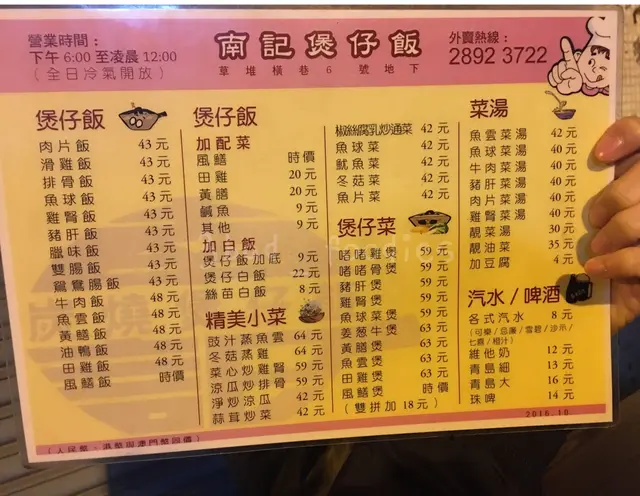 營業時間:
下午 6:00 至凌晨 12:00
(全日冷氣開放)
南記煲仔飯
草堆橫巷6號地下
外賣熱線:
2892 3722
煲仔飯
肉片飯 43元
滑雞飯 43元
排骨飯 43元
魚球飯 43元
雞腎飯 43元
豬肝飯 43元
臘味飯 43元
雙腸飯 43元
鴛鴦腸飯 43元
牛肉飯 48元
魚雲飯 48元
黃膳飯 48元
油鴨飯 48元
田雞飯 48元
風膳飯 時價
煲仔飯
加配菜
風膳 時價
田雞 20元
黃膳 20元
鹹魚 9元
其他 9元
加白飯
煲仔飯加底 9元
煲仔白飯 22元
絲苗白飯 8元
精美小菜
豉汁蒸魚雲 64元
冬菇蒸雞 64元
菜心炒雞腎 59元
涼瓜炒排骨 59元
淨炒涼瓜 42元
蒜茸炒菜 42元
椒絲腐乳炒通菜 42元
魚球菜 42元
魷魚菜 42元
冬菇菜 42元
魚片菜 42元
煲仔菜
啫啫雞煲 59元
啫啫骨煲 59元
豬肝煲 59元
雞腎煲 59元
魚球菜煲 59元
姜葱牛煲 63元
黃膳煲 63元
魚雲煲 63元
田雞煲 63元
風膳煲 時價
(雙拼加18元)
菜湯
魚雲菜湯 42元
魚球菜湯 40元
牛肉菜湯 40元
豬肝菜湯 40元
肉片菜湯 40元
雞腎菜湯 40元
靚菜湯 30元
靚油菜 35元
加豆腐 4元
汽水/啤酒
各式汽水 8元
(可樂/忌廉/雪碧/沙示/
七喜/橙汁)
維他奶 12元
青島細 13元
青島大 16元
珠啤 14元
2016.10